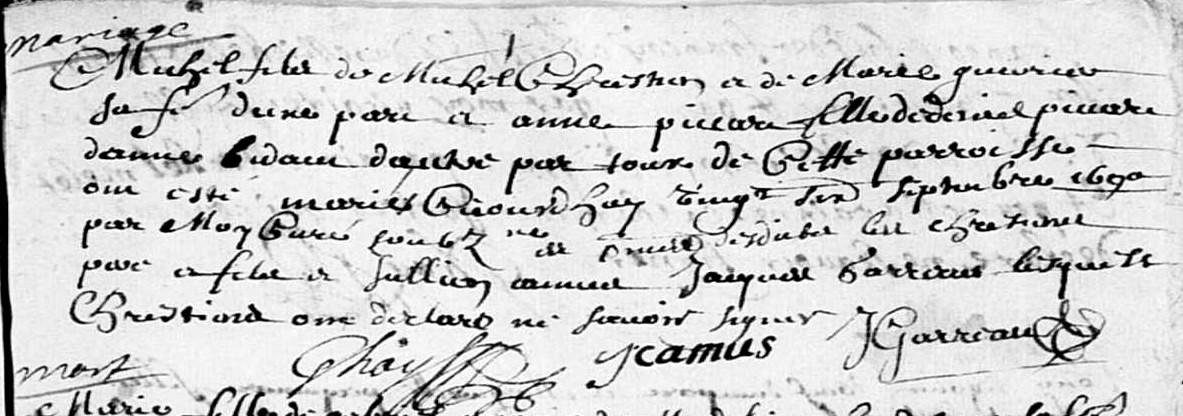 mariage
Michel fils de Michel Chrestien et de Marie guerier
sa fe d'une part et anne picart fille de deniel picart
d'anne bidau d'autre part tous de Cette parroisse
ont esté mariés Ceiourd'huy vingt six septembre 1690
par Moy Curé soubz ne et presence desdits les Chrestiens
pere et fils et Jullien camus Jacques Garreau lesquels
Chrestiens ont declaré ne scavoir signer
JCamus JGarreau
mort
Marie fille de